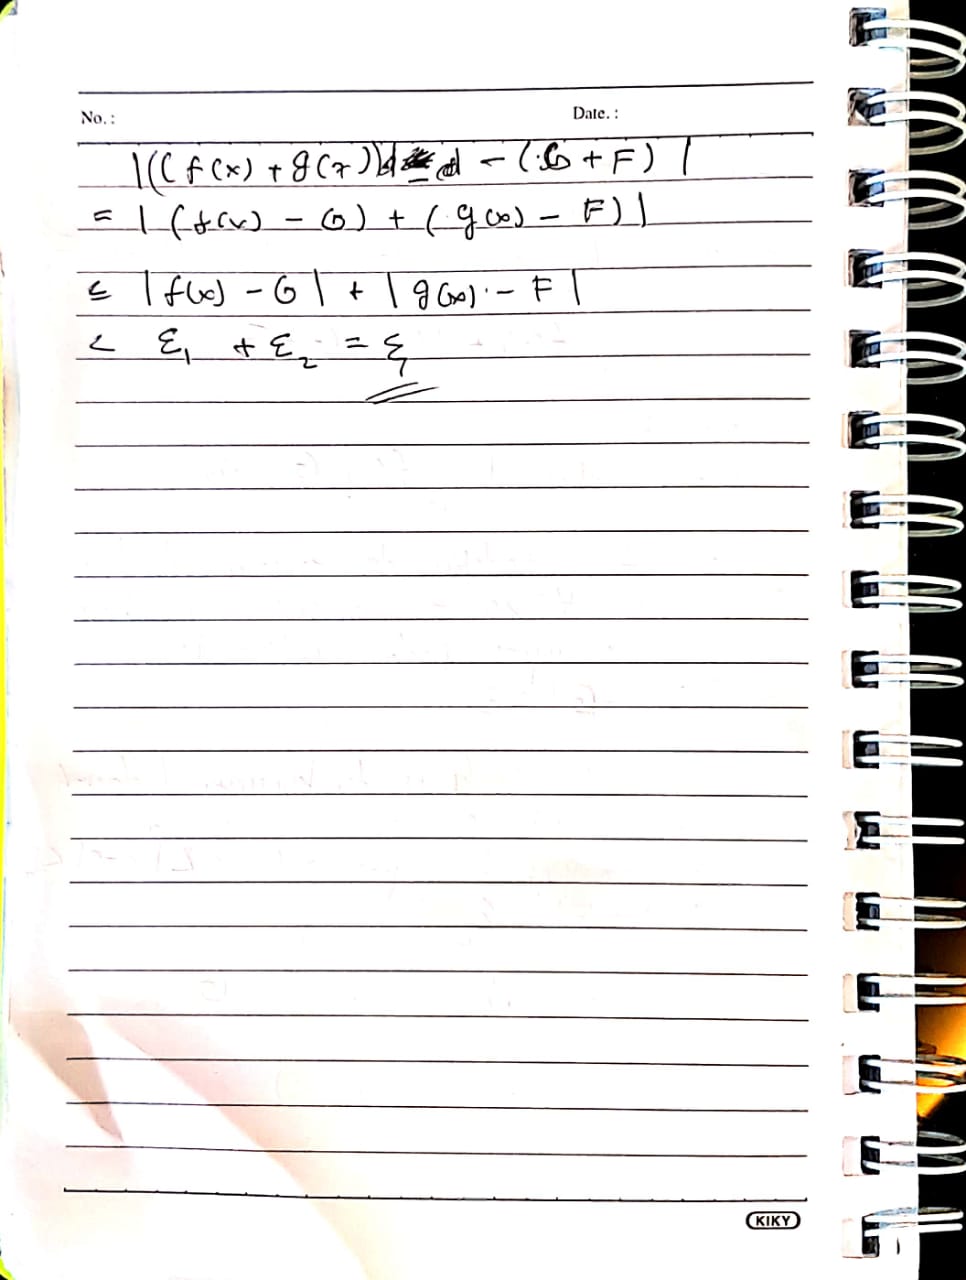 No. : Date. :
|((f(x) + g(x)) - (G + F)|
= | (f(x) - G) + (g(x) - F)|
≤ |f(x) - G| + |g(x) - F|
< ε₁ + ε₂ = ε
KIKY